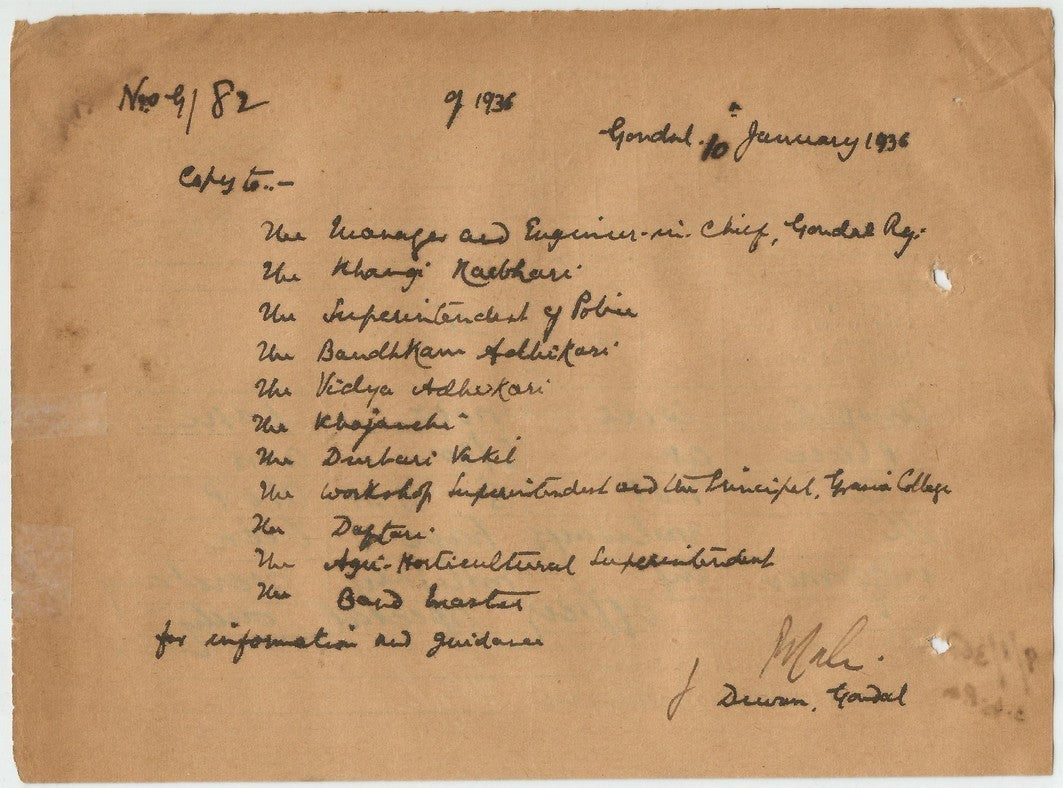 No G/82 of 1936
Gondal. 10th January 1936
Copy to..-
The Manager and Engineer-in-Chief, Gondal Ry.
The Khangi Karbhari
The Superintendent of Police
The Bandhkam Adhikari
The Vidya Adhikari
The Khajanchi
The Durbari Vakil
The Workshop Superintendent and the Principal, Grasia College
The Daftari
The Agri-Horticultural Superintendent
The Band Master
for information and guidance
Dewan, Gondal